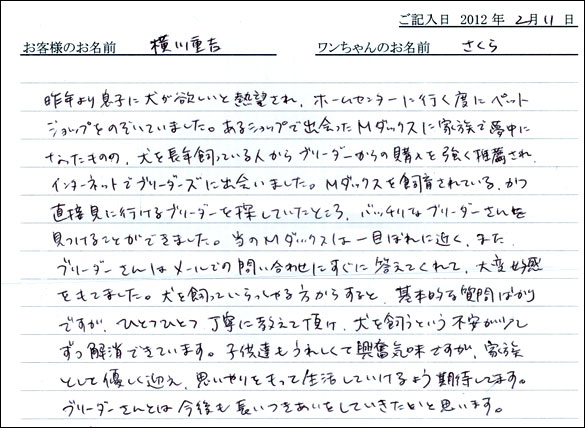 ご記入日 2012 年 2月 11 日
お客様のお名前 横川重吉 ワンちゃんのお名前 さくら
昨年より息子に犬が欲しいと熱望され、ホームセンターに行く度にペット
ショップをのぞいていました。あるショップで出会ったMダックスに家族で夢中に
なったものの、犬を長年飼っている人からブリーダーからの購入を強く推薦され、
インターネットでブリーダーズに出会いました。Mダックスを飼育されている、かつ
直接見に行けるブリーダーを探していたところ、バッチリなブリーダーさんを
見つけることができました。当のMダックスは一目ぼれに近く、また
ブリーダーさんはメールでの問い合わせにすぐに答えてくれて、大変好感
をもてました。犬を飼っていらっしゃる方からすると、基本的な質問ばかり
ですが、ひとつひとつ丁寧に教えて頂け、犬を飼うという不安が少し
ずつ解消できています。子供達もうれしくて興奮気味ですが、家族
として優しく迎え、思いやりをもって生活していけるよう期待してます。
ブリーダーさんとは今後も長いつきあいをしていきたいと思います。